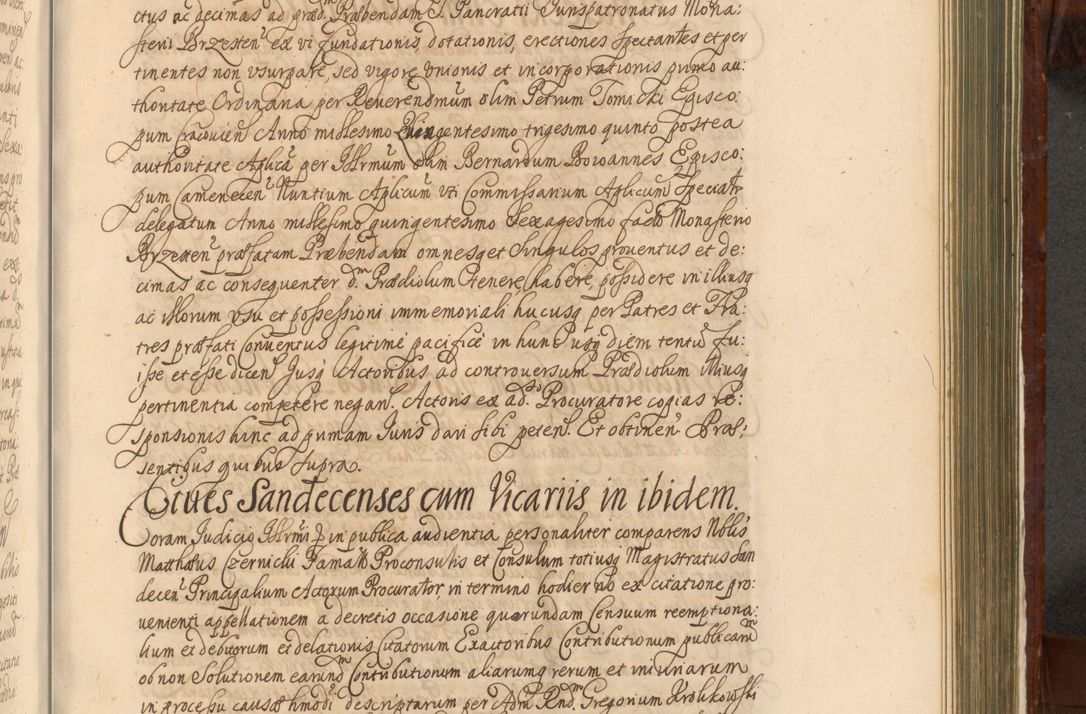 ctus ac decimas ad praed. Praebendam S. Pancratii Iurispatronatus Mona:
sterii Brzesten: ex vi fundationis, dotationis, erectiones spectantes et per
tinentes non vsurpare, sed vigore vnionis et incorporationis primo au:
thoritate Ordinaria per Reuerendmum olim Petrum Tomicki Episco:
pum Cracouien: Anno millesimo Quingentesimo trigesimo quinto, postea
authoritate Aplica per Illrmum olim Bernardum Boioannes Episco:
pum Camerecen: Nuntium Aplicum vti Commissarium Aplicum speciatr
delegatum Anno millesimo quingentesimo sexagesimo facto Monasterio
Brzesten: praefatam Praebendam omnesq et singulos prouentus et de:
cimas ac consequenter dm Praediolum tenere, habere, possidere in illiusq
ac illorum vsu et possessioni immemoriali hucusq per Patres et Fra:
tres praefati Conuentus legitime pacifice in hunc usq diem tentu fu:
isse et esse dicen Jusq Actoribus ad controuersum Praediolum illiusq
pertinentia competere negan. Actoris ex adso Procuratore copias re:
sponsionis hinc ad primam Iuris dari sibi peten. Et obtinen: Prae:
sentibus quibus supra.
Ciues Sandecenses cum Vicariis in ibidem.
Coram Judicio Illrmi P in publica audientia personaliter comparens Nobis
Matthaeus Czernicki Famatt Proconsulis et Consulum totiusq Magistratus San
decen: Principalium Actorum Procurator, in termino hodierno ex citatione pro:
uenienti appellationem a decretis occasione quarundam Censuum reemptiona:
lium ex debitorum et delationis citatorum Exactoribus Contributionum publicarum
ob non Solutionem earundm Contributionum aliarumq rerum et iniuriarum
in processu causae hmodi descriptarum per Adm Rnd. Gregorium Krolikowski